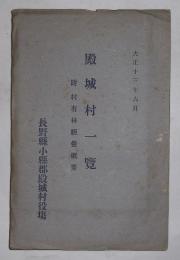 大正十三年六月
殿城村一覧
附村有林経営概要
長野縣小縣郡殿城村役場